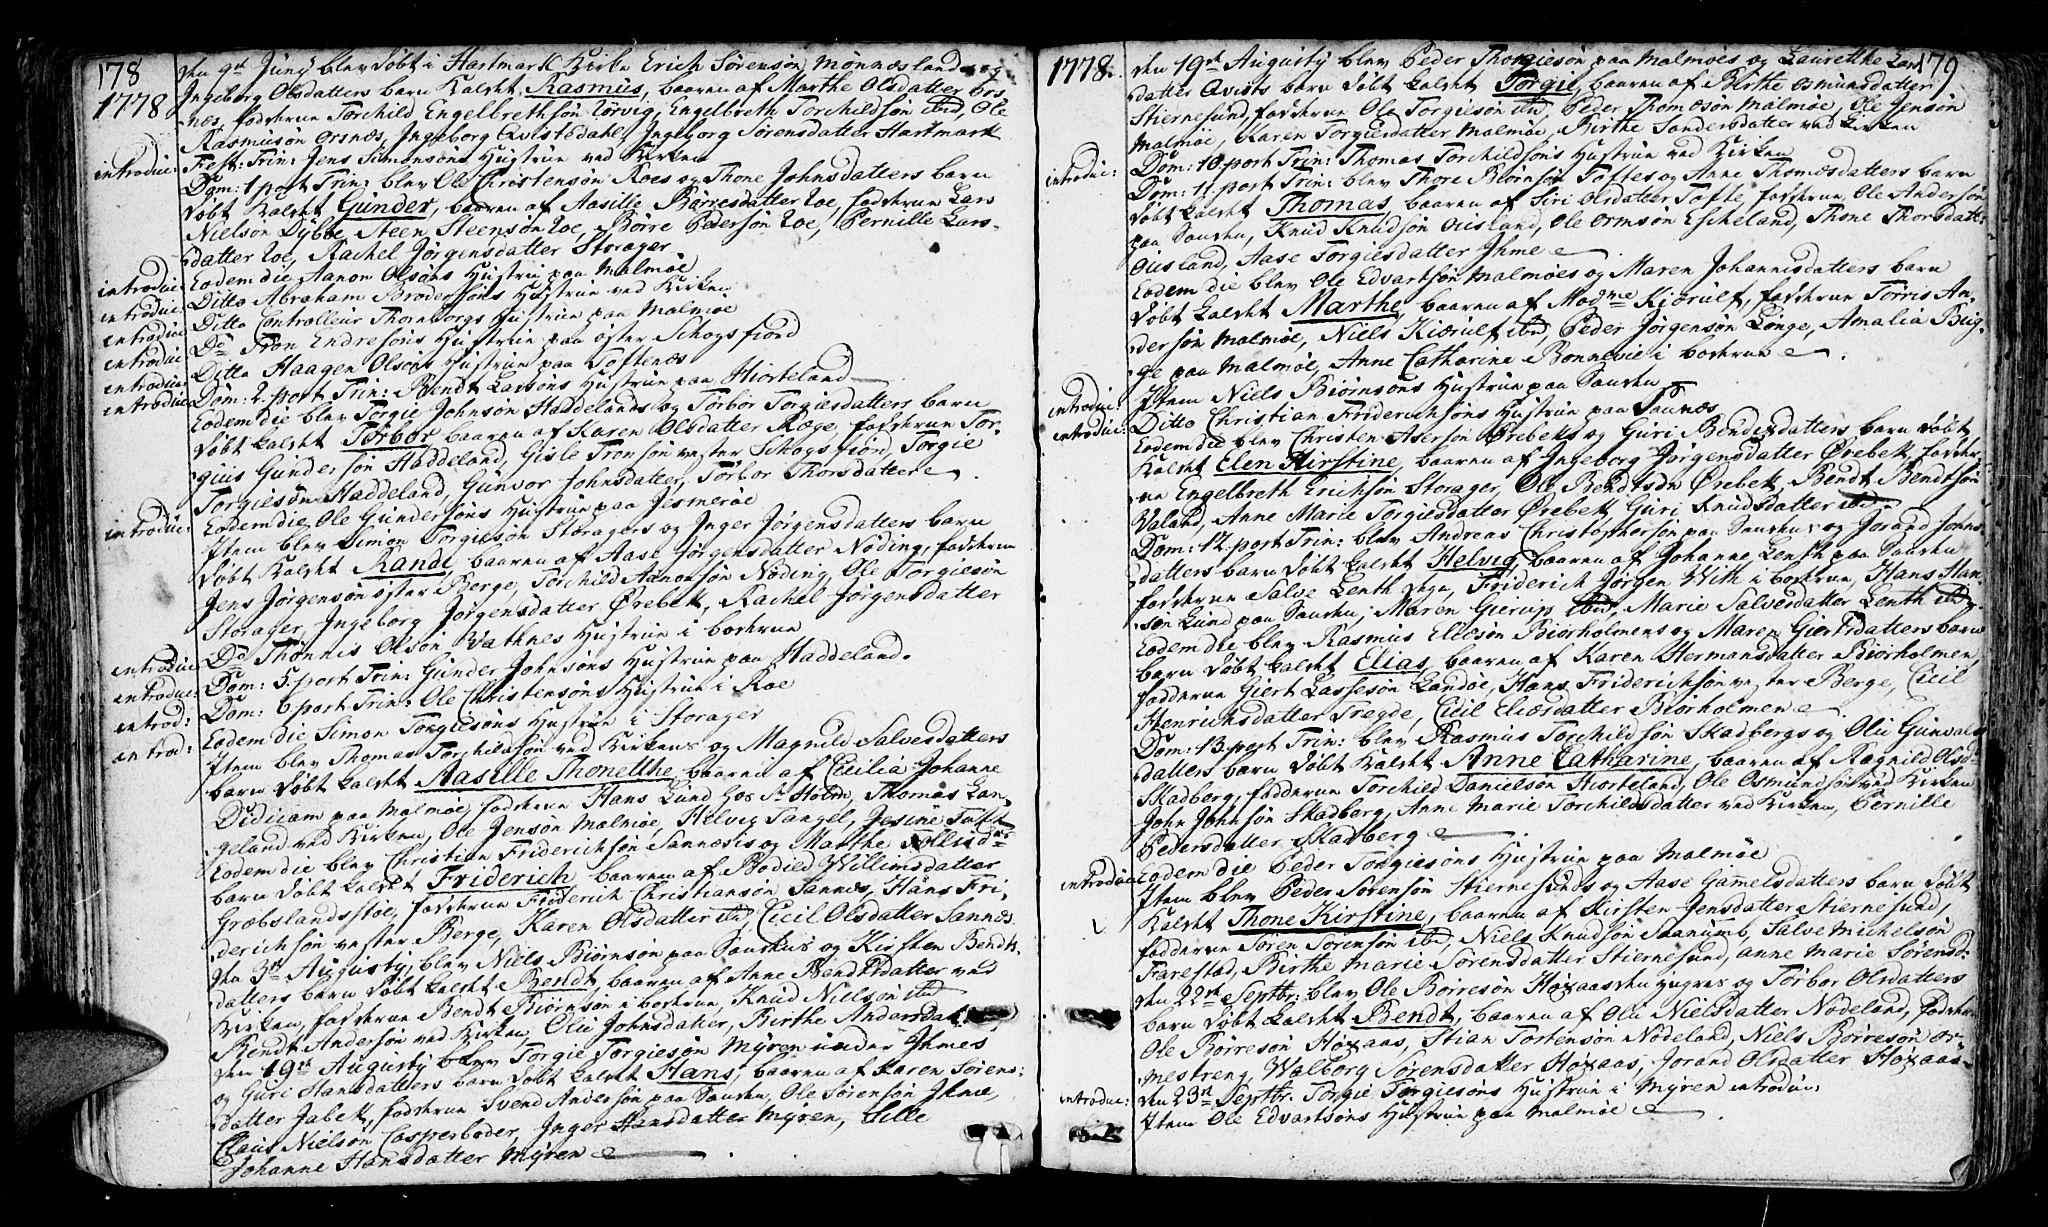 178
1778
den 9de Junÿ blev døbt i Hartmark Kirke Erich Sørensøn Mønnæslands og
Ingeborg Olsdatters barn kaldet Rasmus, baaren af Marthe Olsdatter ors-
næs, fadderne Torchild Engelbrethsøn Torvig, Engelbreth Torchildsøn ibid, Ole
Rasmusøn orsnæs, Ingeborg Qvistsdahl, Ingeborg Sørensdatter Hartmark
introduc: Fest: Trin: Jens Simonsøns Hustrue ved Kirken
Dom: 1 port Trin: blev Ole Christensøn Roes og Thone Johnsdatters barn
døbt kaldet Gunder, baaren af Aasille Børresdatter Roe, fadderne Lars
Nielsøn Dybøe, Steen Steensøn Roe, Børre Pedersøn Roe, Pernille Lars-
datter Roe, Rachel Jørgensdatter Storager
introduc: Eodem die Aanon Olsøns Hustrue paa Malmøe
introduc: Ditto Abraham Brodersøns Hustrue ved Kirken
introduc: Ditto Controlleur Thornborgs Hustrue paa Malmøe
introduc: Do Tron Endresøns Hustrue paa øster Schogsfiord
introduc: Ditto Haagen Olsøns Hustrue paa Toftenæs
introduc: Dom: 2 port Trin: Bendt Larsøns Hustrue paa Hiorteland
Eodem die blev Torgie Johnsøn Haddelands og Torbor Torgiesdatters barn
døbt kaldet Torbor, baaren af Karen Olsdatter Møge, fadderne Tor-
gius Gundersøn Haddeland, Gisle Tronsøn vester Schogsfiord, Torgie
Torgiesøn Haddeland, Gunvor Johnsdatter, Torbor Thorsdatter
introduc: Eodem die Ole Gundersøns Hustrue paa Jesmerøe
Item blev Simon Torgiesøn Storagers og Inger Jørgensdatters barn
døbt kaldet Rande, baaren af Aase Jørgensdatter Nøding, fadderne
Jens Jørgensøn øster Berge, Torchild Aanonsøn Nøding, Ole Torgiesøn
Storager, Ingeborg Jørgensdatter Ørebek, Rachel Jørgensdatter
introduc: Do Thønnis Olsøn Vathnes Hustrue i bosterne
introduc: Dom: 5 port Trin: Gunder Johnsøns Hustrue paa Haddeland.
introd: Dom: 6 port Trin: Ole Christensøns Hustrue i Roe
introd: Eodem die Simon Torgiesøns Hustrue i Storager
Item blev Thomas Torchildsøn ved Kirkens og Magnild Salvesdatters
barn døbt kaldet Aasille Thonethe, baaren af Cicilia Johanne
paa Malmøe, fadderne Hans Lund hos Holm, Thomas Lan-
geland ved Kirken, Ole Jensøn Malmøe, Helvig Tangel, Jesine
Eodem die blev Christian Friderichsøn Sannæsis og Marthe
barn døbt kaldet Friderich baaren af Bodild Willumsdatter
Grøbslandsstøe, fadderne Friderich Christiansøn Sannæs, Hans Fri-
derichsøn vester Berge, Karen Olsdatter ibid, Cicil Olsdatter Sannæs
den 3de Augustÿ, blev Niels Biørnsøn paa Sanskus og Kirsten Bendts-
datters barn døbt kaldet Bendt, baaren af Anne Bendtsdatter ved
Kirken, fadderne Bendt Biørnsøn i bosterne, Knud Nielsøn ibid
Bendt Andersøn ved Kirken, Oliv Johnsdatter, Birthe Andersdatter,
den 19de Augustÿ blev Torgie Torgiesøn Mÿren under Ihmes
og Guri Hansdatters barn døbt kaldet Hans, baaren af Karen Sørens-
datter Jabek, fadderne Svend Andersøn paa Sansken, Ole Sørensøn Ihme,
Claus Nielsøn Casperboder, Inger Hansdatter Mÿren, Sille
Johanne Hansdatter Mÿren
179
1778.
den 19de Augustÿ blev Peder Thorgiesøn paa Malmøes og Laurethe Lars-
datter Qvists barn døbt kaldet Torgie, baaren af Birthe osmundsdatter
Stiernesund, fadderne Ole Torgiesøn ibid, Peder Thomosøn Malmøe, Ole Jensøn
Malmøe, Karen Torgiesdatter Malmøe, Birthe Sandersdatter ved Kirken
introduc: Dom: 10 port Trin: Thomas Torchildsøns Hustrue ved Kirken
Dom: 11 port Trin: blev Thore Biørnsøn Toftes og Anne Thomesdatters barn
døbt kaldet Thomas, baaren af Siri Olsdatter Tofte, fadderne, Ole Andersøn
paa Sansken, Knud Knudsøn Ousland, Ole Ormsøn Escheland, Thone Thorsdatt:
Ousland, Aase Torgiesdatter Ihme
Eodem die blev Ole Edvartsøn Malmøes og Maren Johannisdatters barn
døbt kaldet Marthe, baaren af Madme Kiærulf, fadderne Torris An-
dersøn Malmøe, Niels Kiærulf ibid, Peder Jørgensøn Longe, Amalia Bug-
ge paa Malmøe, Anne Catharine Bonnevie i bosterne.
introduc: Item Niels Biørnsøns Hustrue paa Sansken
introduc: Ditto Christian Friderichsøns Hustrue paa Sannæs
Eodem die blev Christen Asersøn Ørebeks og Guri Bendixdatters barn døbt
kaldet Elen Kirstine, baaren af Ingeborg Jørgensdatter Ørebek, fadder-
ne Engelbreth Erichsøn Storager, Ole Bendtsøn Ørebek, Bendt Bendtsøn
Valand, Anne Marie Torgiesdatter Ørebek, Guri Knudsdatter ibid
Dom: 12 port Trin: blev Andreas Christophersøn paa Sanskens og Jorand Johns-
datters barn døbt kaldet Helvig, baaren af Johanne Lenth paa Sansken
fadderne Salve Lenth, Friderich Jørgen With i bosterne, Hans Han-
søn Lund paa Sansken, Maren Gierup ibid, Marie Salvesdatter Lenth ibid
Eodem die blev Rasmus Eliæsøn Biørholmens og Maren Giertsdatters barn
barn døbt kaldet Elias, baaren af Karen Hermansdatter Biørholmen,
fadderne Giert Lassesøn Landøe, Hans Friderichsøn vester Berge, Cicil
Henrichsdatter Tregde, Cicil Eliæsdatter Biørholmen
Dom: 13 port Trin: blev Rasmus Torchildsøn Skadbergs og Oliv Gunvals-
datters barn døbt kaldet Anne Catharine, baaren af Ragnild Olsd-
Skadberg, fadderne Torchild Danielsøn Hiorteland, Ole Osmundsøn ved Kirken,
John Johnsøn Skadberg, Anne Marie Torchildsdatter ved Kirken, Pernille
Pedersdatter Skadberg
introduc: Eodem die Peder Torgiesøns Hustrue paa Malmøe
Item blev Peder Sørensøn Stiernesunds og Aase Gamelsdatters barn døbt
kaldet Thone Kirstine, baaren af Kirsten Jensdatter Stiernesund,
fadderne Søren Sørensøn ibid, Niels Knudsøn Saanumb, Salve Michelsøn
Farestad, Birthe Marie Sørensdatter Stiernesund, Anne Marie Sørensd:
den 22de Septbr: blev Ole Børresøn Høyaas og Torbor Olsdatters
barn døbt kaldet Bendt, baaren af Oliv Nielsdatter Nødeland, fadderne
Ole Børresøn Høyaas, Stian Tortensøn Nødeland, Niels Børresøn or-
mestreng, Walborg Sørensdatter Høyaas, Jorand Olsdatter Høyaas
introduc: den 23de Septbr: Torgie Torgiesøns Hustrue i Mÿren introduc:
Item Ole Edvartsøns Hustrue paa Malmøe